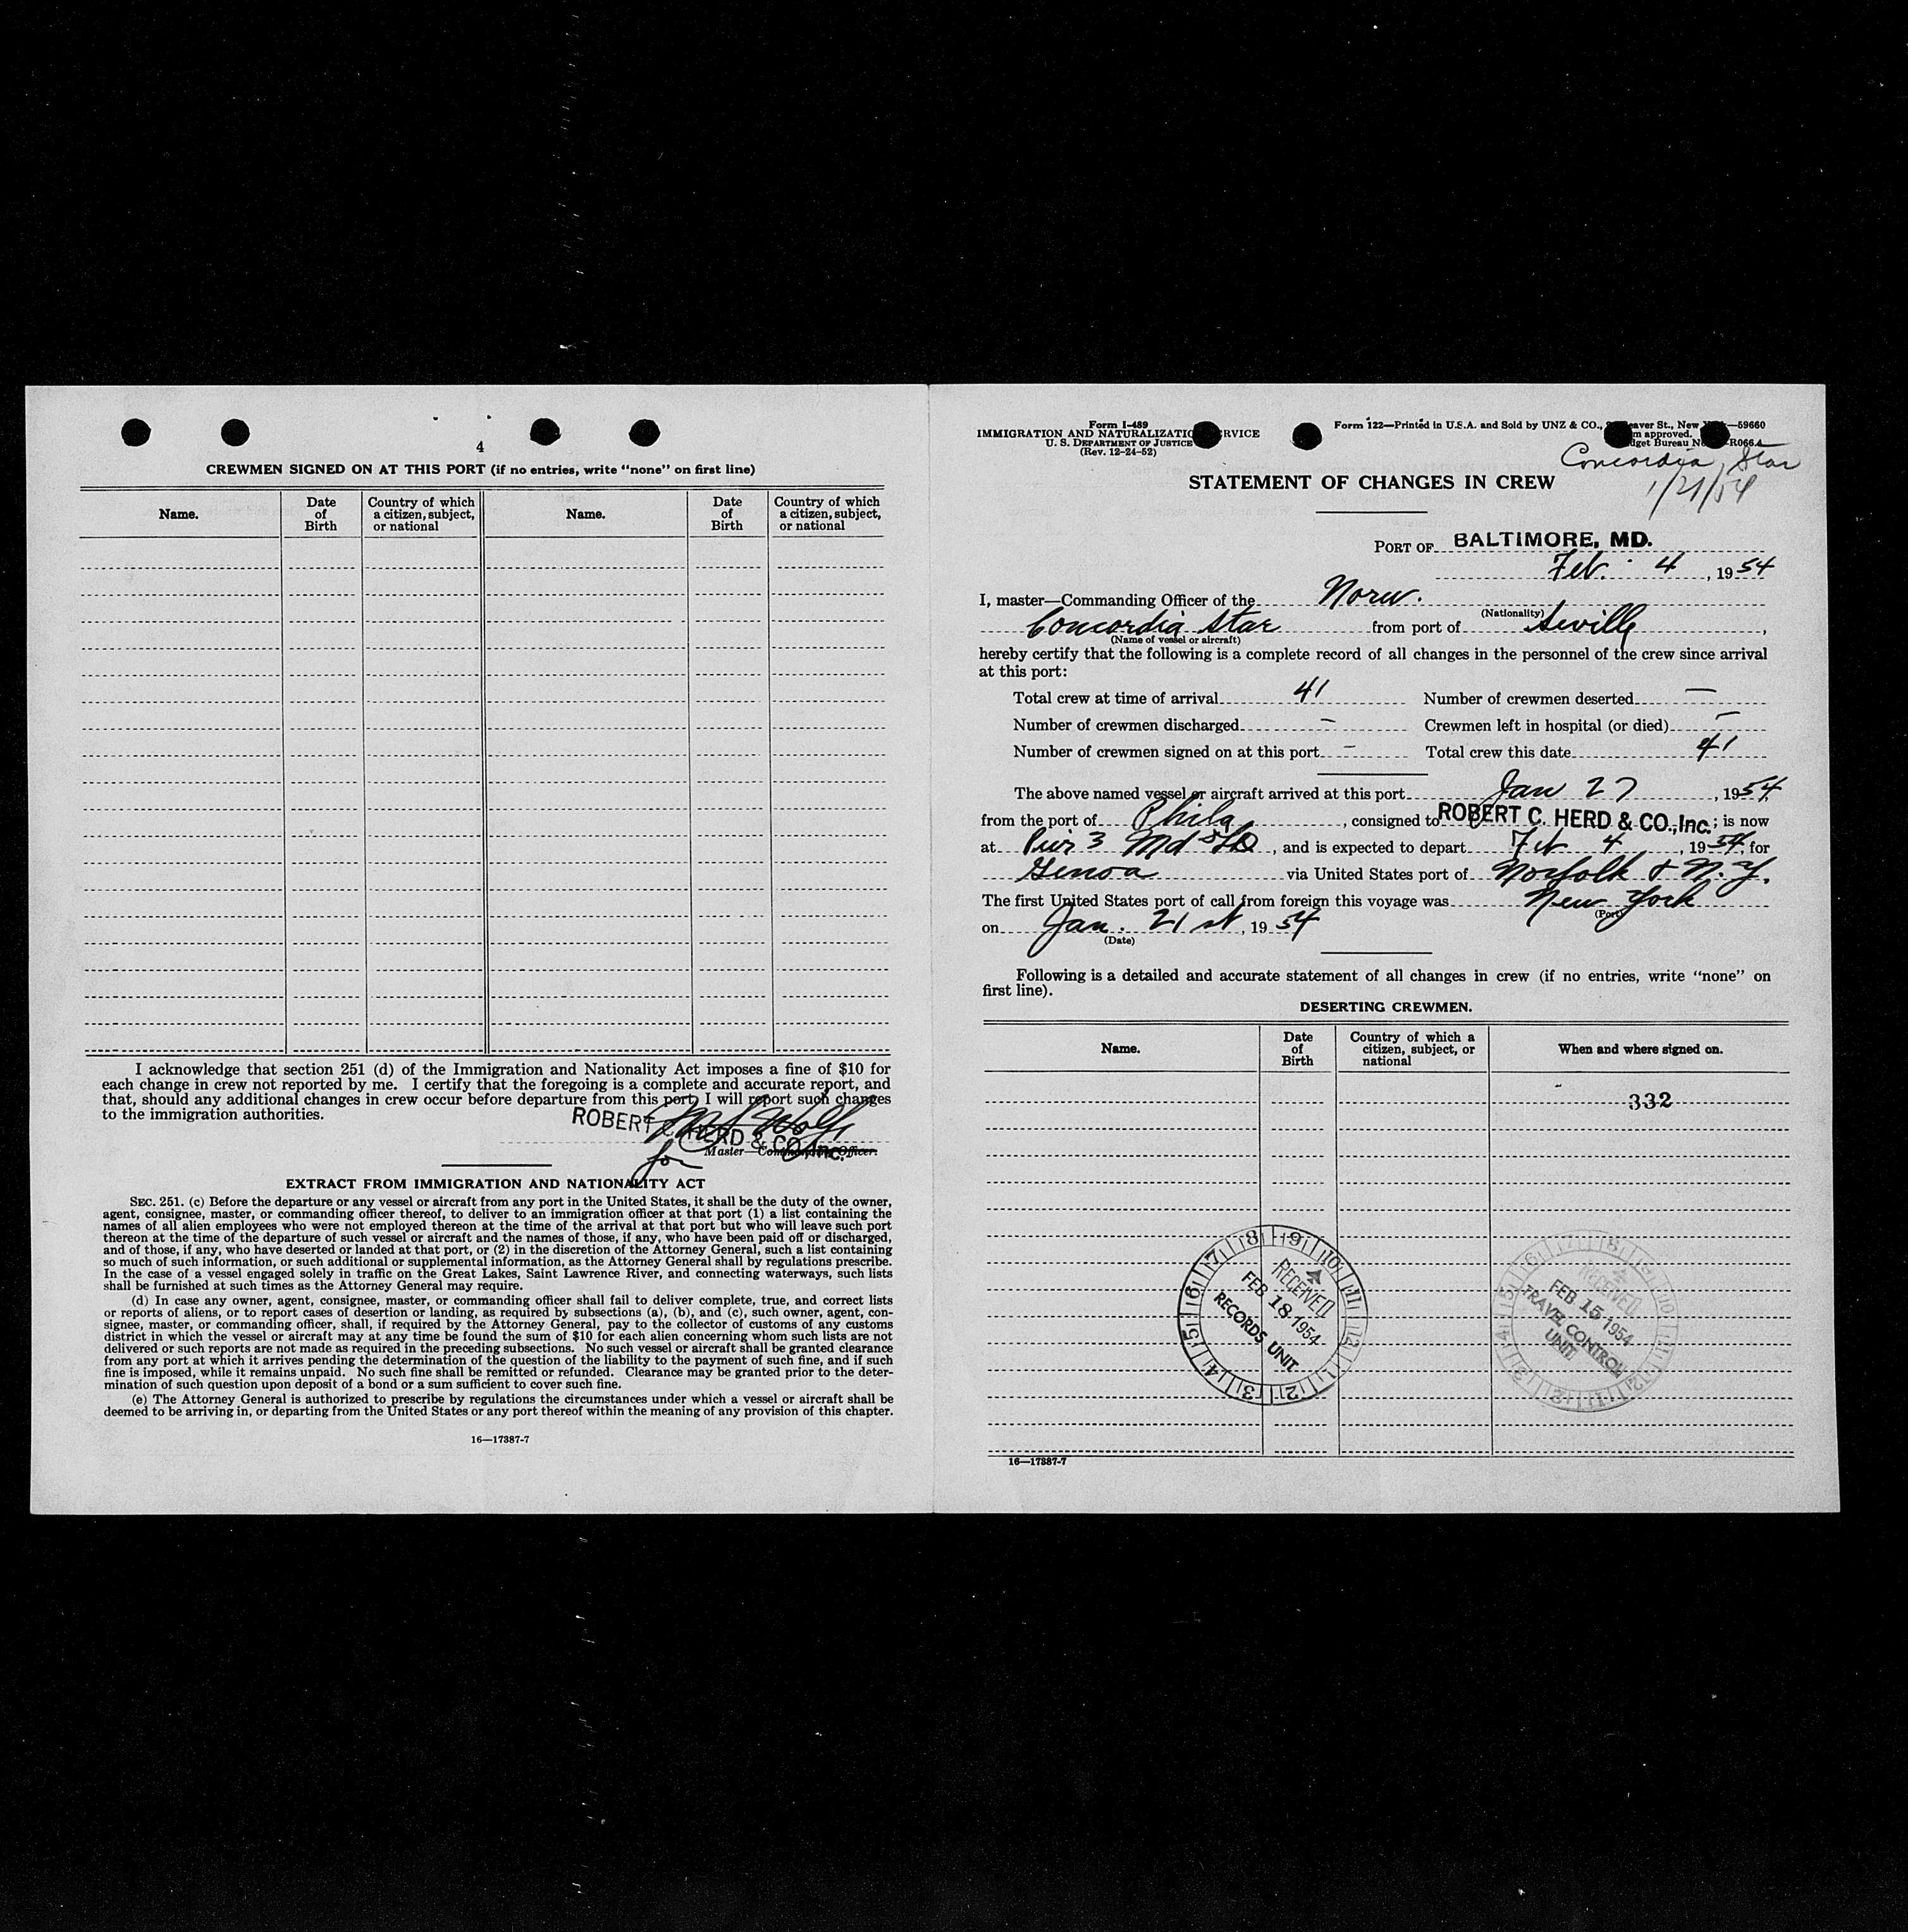 4
CREWMEN SIGNED ON AT THIS PORT (if no entries, write "none" on first line)
Name. Date of Birth Country of which a citizen, subject, or national Name. Date of Birth Country of which a citizen, subject, or national
I acknowledge that section 251 (d) of the Immigration and Nationality Act imposes a fine of $10 for
each change in crew not reported by me. I certify that the foregoing is a complete and accurate report, and
that, should any additional changes in crew occur before departure from this port, I will report such changes
to the immigration authorities.
ROBERT C. HERD & CO., Inc.
for Master—Commanding Officer.
EXTRACT FROM IMMIGRATION AND NATIONALITY ACT
SEC. 251. (c) Before the departure or any vessel or aircraft from any port in the United States, it shall be the duty of the owner,
agent, consignee, master, or commanding officer thereof, to deliver to an immigration officer at that port (1) a list containing the
names of all alien employees who were not employed thereon at the time of the arrival at that port but who will leave such port
thereon at the time of the departure of such vessel or aircraft and the names of those, if any, who have been paid off or discharged,
and of those, if any, who have deserted or landed at that port, or (2) in the discretion of the Attorney General, such a list containing
so much of such information, or such additional or supplemental information, as the Attorney General shall by regulations prescribe.
In the case of a vessel engaged solely in traffic on the Great Lakes, Saint Lawrence River, and connecting waterways, such lists
shall be furnished at such times as the Attorney General may require.
(d) In case any owner, agent, consignee, master, or commanding officer shall fail to deliver complete, true, and correct lists
or reports of aliens, or to report cases of desertion or landing, as required by subsections (a), (b), and (c), such owner, agent, con-
signee, master, or commanding officer, shall, if required by the Attorney General, pay to the collector of customs of any customs
district in which the vessel or aircraft may at any time be found the sum of $10 for each alien concerning whom such lists are not
delivered or such reports are not made as required in the preceding subsections. No such vessel or aircraft shall be granted clearance
from any port at which it arrives pending the determination of the question of the liability to the payment of such fine, and if such
fine is imposed, while it remains unpaid. No such fine shall be remitted or refunded. Clearance may be granted prior to the deter-
mination of such question upon deposit of a bond or a sum sufficient to cover such fine.
(e) The Attorney General is authorized to prescribe by regulations the circumstances under which a vessel or aircraft shall be
deemed to be arriving in, or departing from the United States or any port thereof within the meaning of any provision of this chapter.
16—17387-7
Form I-489
IMMIGRATION AND NATURALIZATION SERVICE
U. S. DEPARTMENT OF JUSTICE
(Rev. 12-24-52)
Form 122—Printed in U.S.A. and Sold by UNZ & CO., Beaver St., New —59660
approved.
Budget Bureau No. R066.4
Concordia Star
1/21/54
STATEMENT OF CHANGES IN CREW
PORT OF BALTIMORE, MD.
Feb. 4, 1954
I, master—Commanding Officer of the Norw.
(Nationality)
Concordia Star from port of Seville,
(Name of vessel or aircraft)
hereby certify that the following is a complete record of all changes in the personnel of the crew since arrival
at this port:
Total crew at time of arrival 41 Number of crewmen deserted —
Number of crewmen discharged – Crewmen left in hospital (or died) –
Number of crewmen signed on at this port – Total crew this date 41
The above named vessel or aircraft arrived at this port Jan 27, 1954
from the port of Phila, consigned to ROBERT C. HERD & CO., Inc.; is now
at Pier 3 Md, and is expected to depart Feb 4, 1954, for
Genoa via United States port of Norfolk & N.Y.
The first United States port of call from foreign this voyage was New York
(Port)
on Jan. 21st, 1954
(Date)
Following is a detailed and accurate statement of all changes in crew (if no entries, write "none" on
first line).
DESERTING CREWMEN.
Name. Date of Birth Country of which a citizen, subject, or national When and where signed on.
332
RECEIVED
FEB 18 1954
RECORDS UNIT
RECEIVED
FEB 15 1954
TRAVEL CONTROL
UNIT
16—17387-7